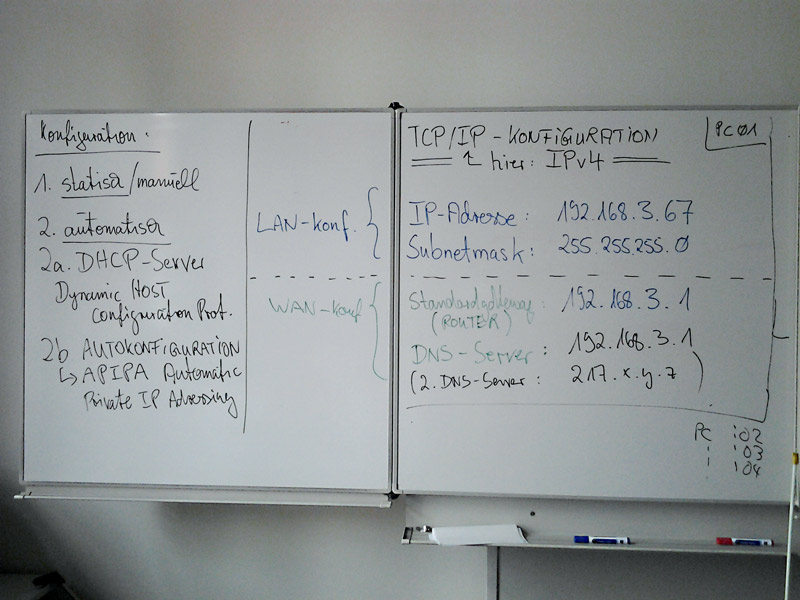 Konfiguration:
1. statisch/manuell
2. automatisch
2a. DHCP-Server
Dynamic HOST
Configuration Prot.
2b AUTOKONFIGURATION
↳ APIPA Automatic
Private IP Adressing
LAN-Konf. {
WAN-Konf {
TCP/IP-KONFIGURATION
hier: IPv4
PC 01
IP-Adresse: 192.168.3.67
Subnetmask: 255.255.255.0
Standardgateway: 192.168.3.1
(ROUTER)
DNS-Server: 192.168.3.1
(2. DNS-Server: 217.x.y.z)
PC :02
03
04